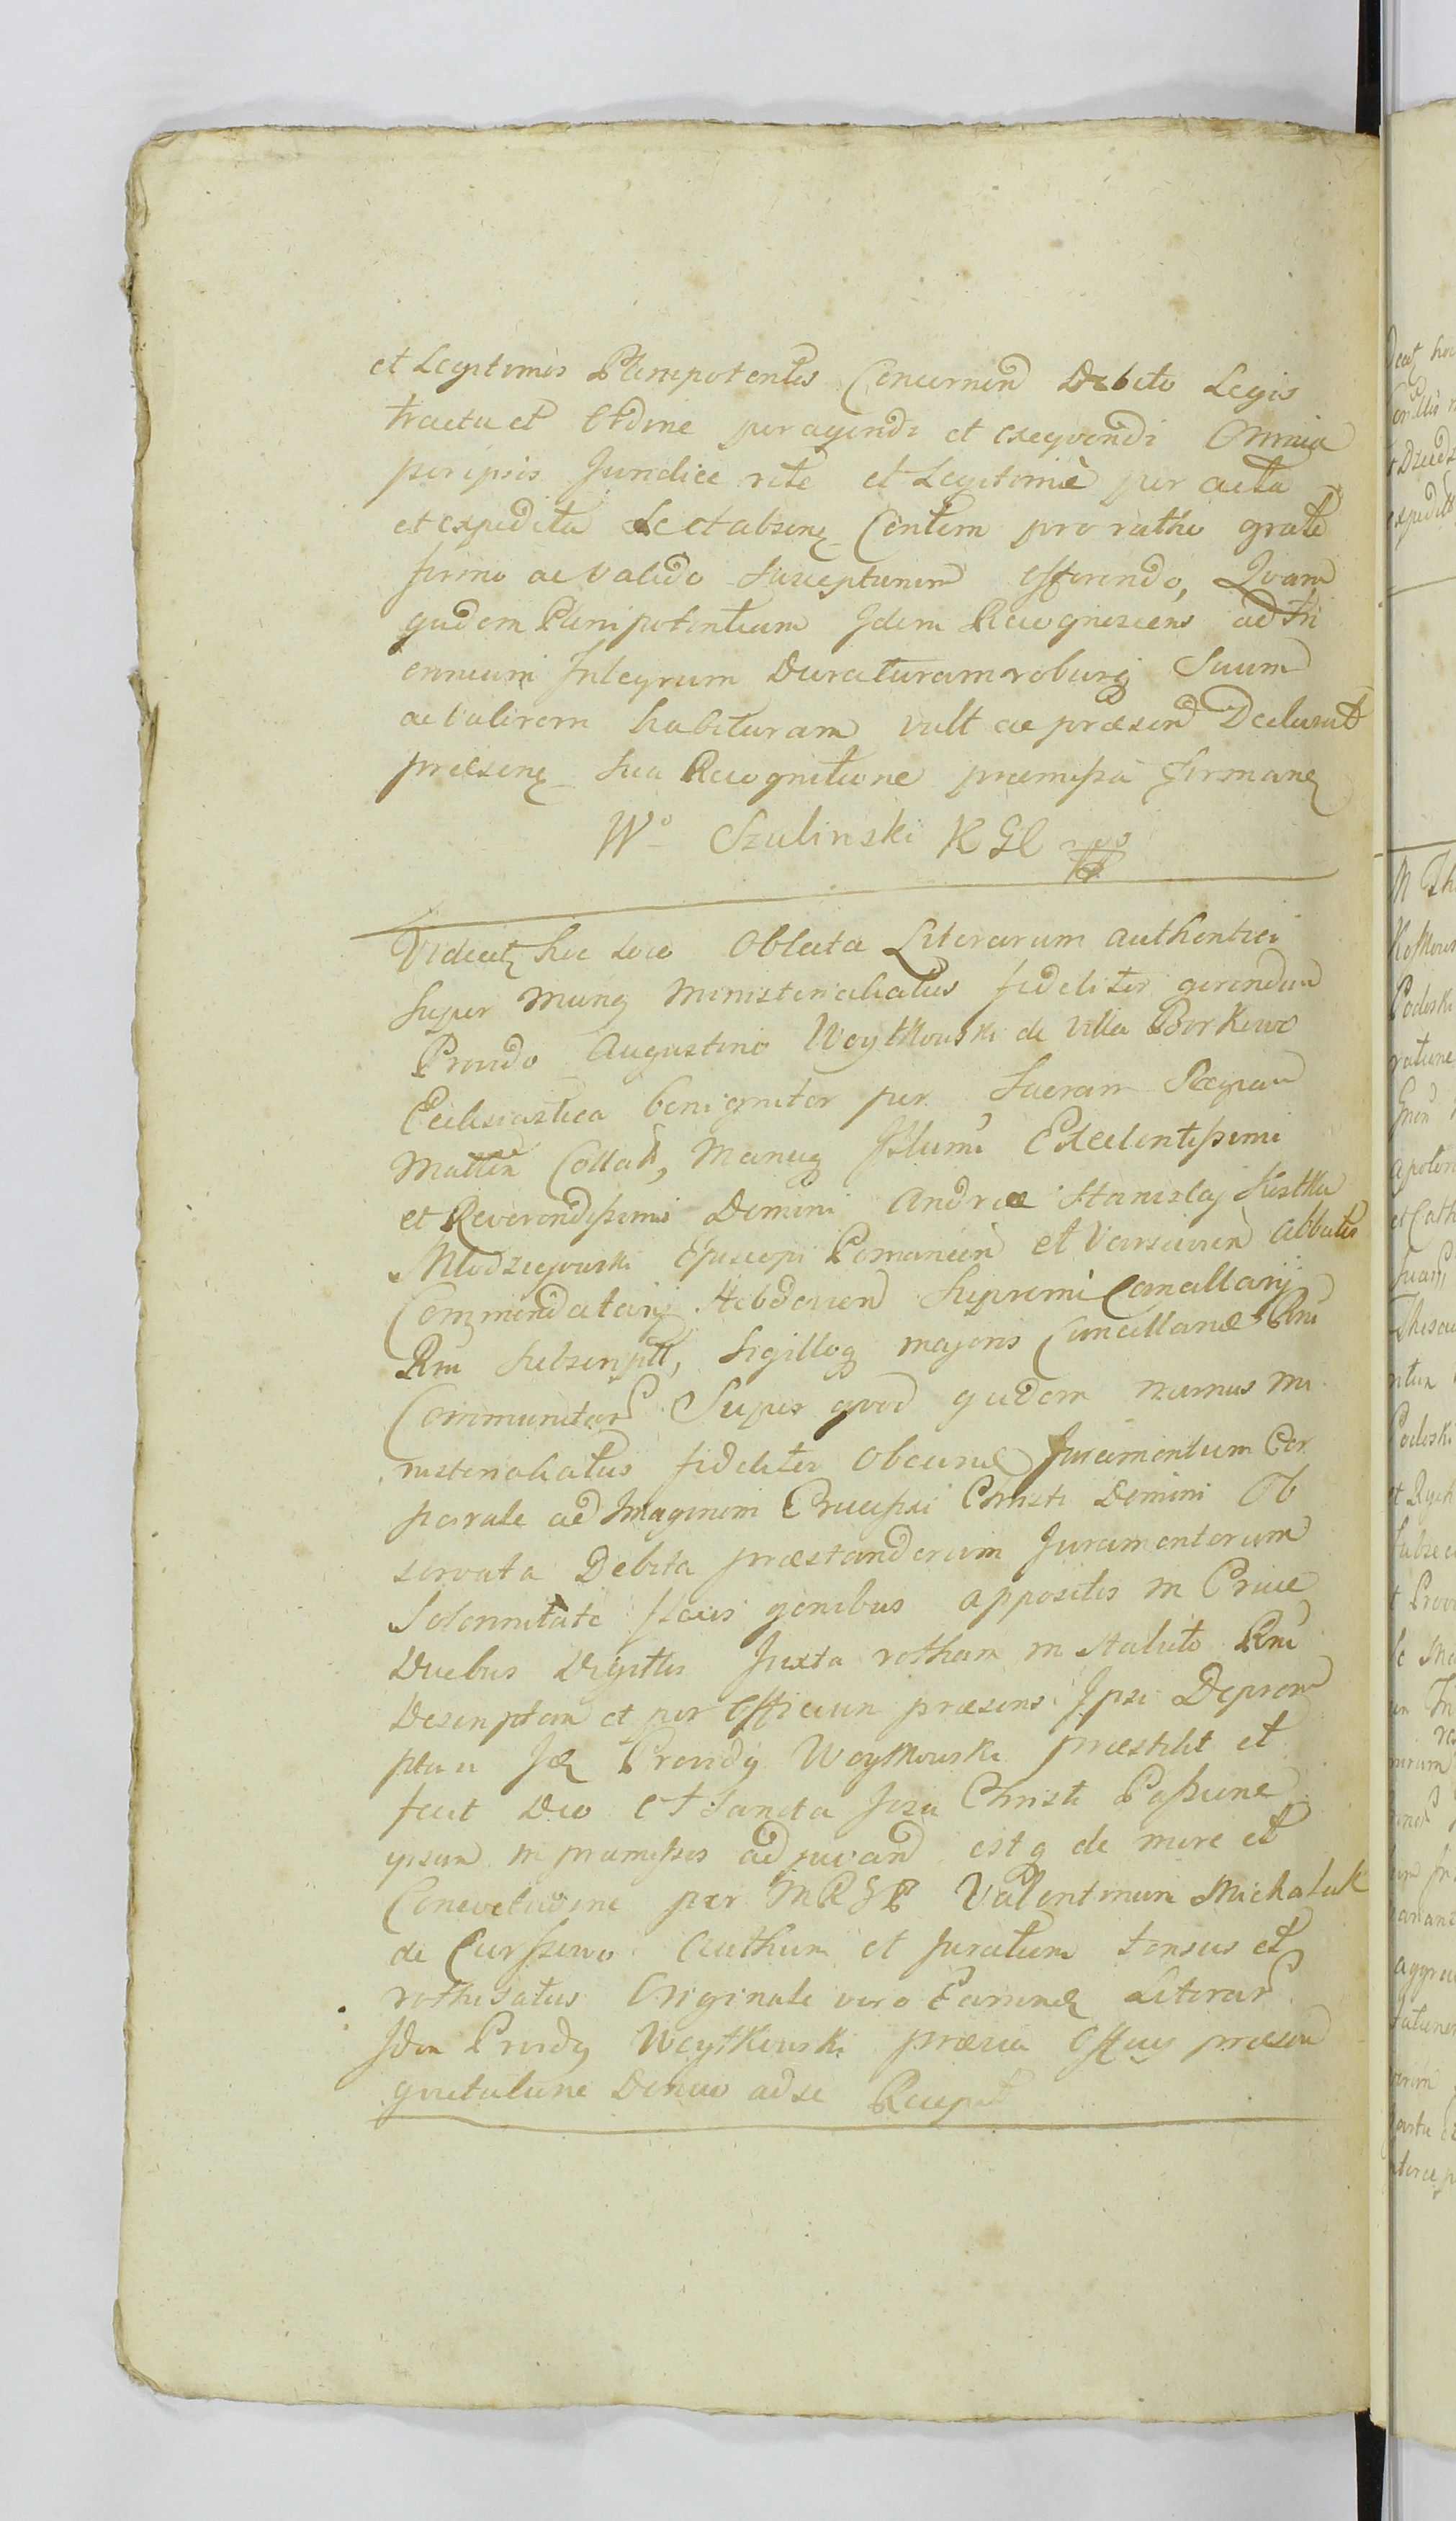 et Legitimis Plenipotentis Concernen Debito Legis
tractu et Ordine peragendi et exeqvendi Omnia
per ipsos Juridice rite et Legitimè per acta
et expedita Se et absenq Contem pro ratho grato
firmo ac valido Suscepturum offerendo, Qvam
quidem Plenipotentiam Idem Recognoscens ad tri
ennium Integrum Duraturam roburq Suum
ac valorem habituram vult ac præsen Declarat
præsenq Sua Recognitione præmissa firmanq
Wo Szulinski K G C mpp
Videatq hoc Loco Oblata Literarum authentici
Super Munq Ministerialatus fideliter gerendum
Provido Augustino Woytkowski de Villa Borkowo
Ecclesiastica benigniter per Sacram Regiam
Mattem Collat, Manuq Illumi Excelentissimi
et Reverendissimi Domini Andreæ Stanislaj Kostka
Młodzieiowski Episcopi Posnanien et Varsavien abbatis
Commendatarij Hebdovien Supremi Cancellarij
Rni Subscriptt, Sigilloq majoris Cancellariæ Rni
Communitar Super qvod quidem munus mi
nisterialatus fideliter obeund Juramentum Cor
porale ad Imaginem Crucifixi Christi Domini Ob
servata Debita præstandorum Juramentorum
Solennitate flexis genibus appositis in Cruce
Duobus Digitis Juxta rotham in Statuto Rni
Descriptam et per Officium præsens Ipsi Deprom
ptam Idq Providq Woytkowski præstitit et
fecit Deo et Sancta Jesu Christi Passione
ipsum in præmissis adjuvand estq de more et
Consvetudine per M R G P Valentinum Michalak
de authum et Juratum tonsus et
rothisatus Originale vero Earunq Literar
Idem Providq Woytkowski præsa Officij præsen
qvietatione Denuo ad se Recepit